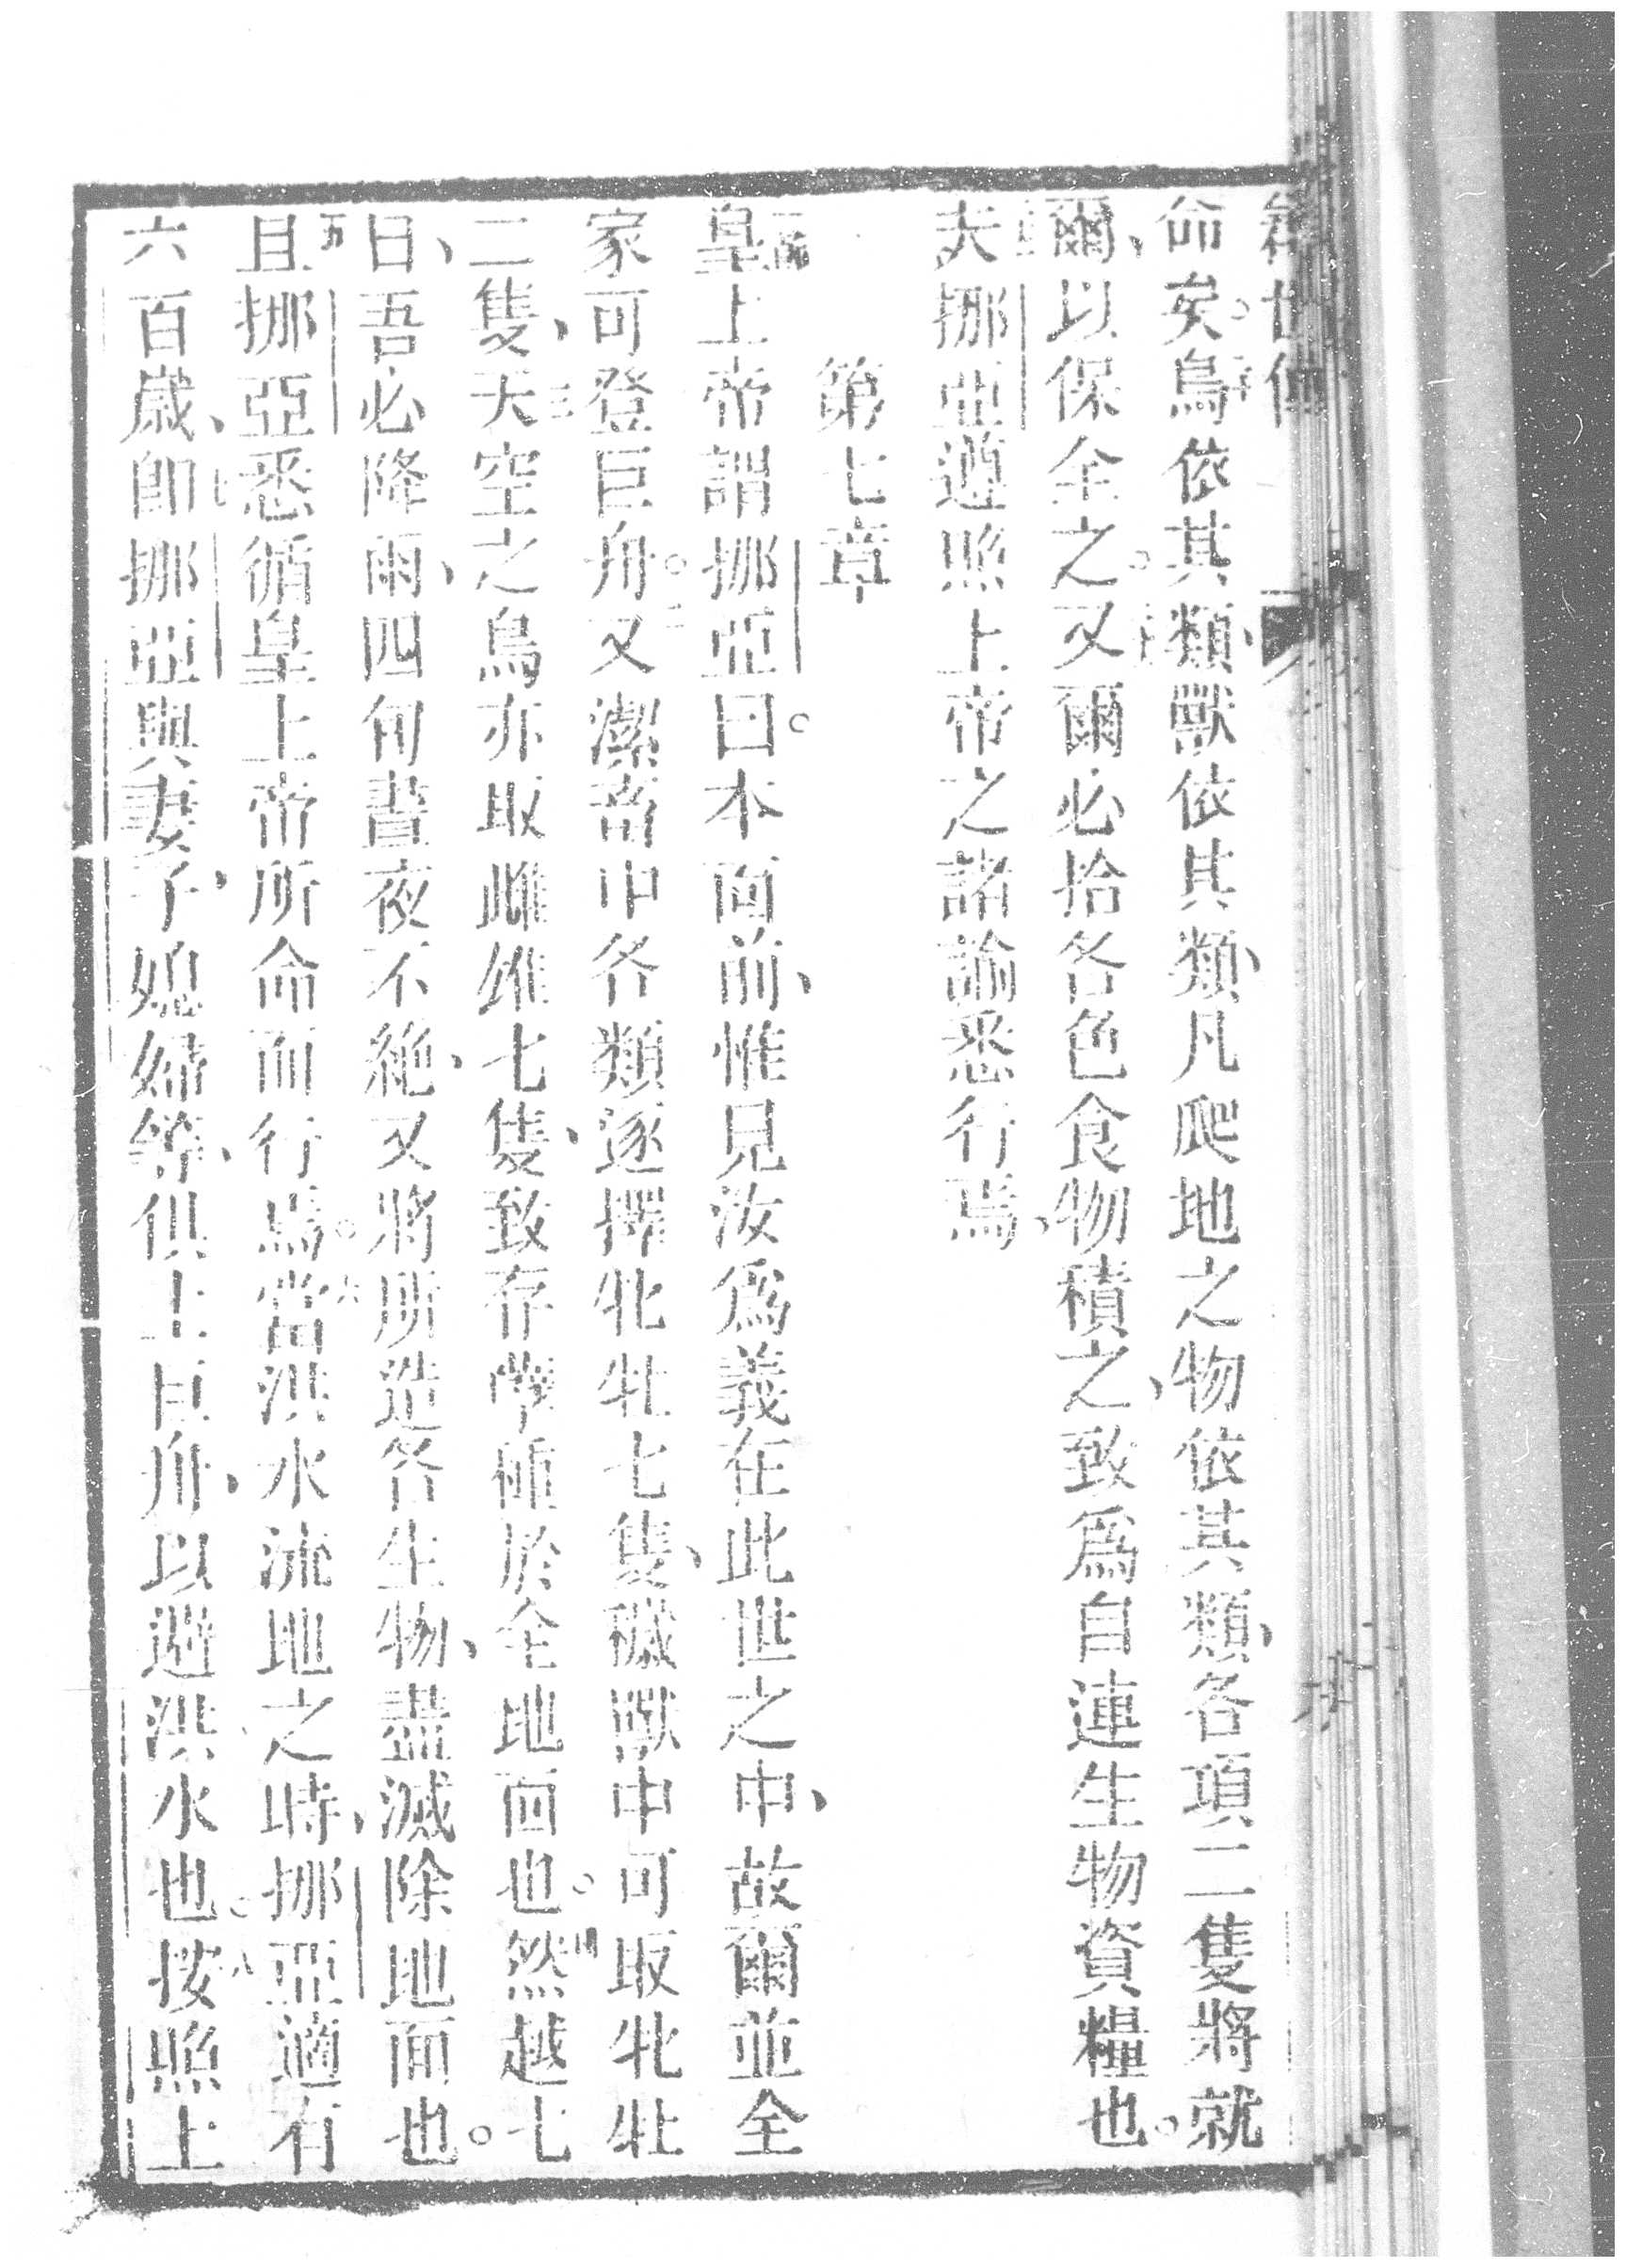 創世傳
命矣。鳥依其類、獸依其類、凡爬地之物依其類、各項二隻將就
爾、以保全之。又爾必拾各色食物積之、致爲自連生物資糧也。
夫挪亞遵照上帝之諸諭悉行焉、
第七章
皇上帝謂挪亞曰。本面前、惟見汝爲義在此世之中、故爾並全
家可登巨舟。二又潔畜中各類逐擇牝牡七隻、穢獸中可取牝牡
二隻、三天空之鳥亦取雌雄七隻、致存孳種於全地面也。四然越七
日、吾必降雨、四旬晝夜不絶、又將所造各生物、盡滅除地面也。
五且挪亞悉循皇上帝所命而行焉。六當洪水流地之時、挪亞適有
六百歲、七即挪亞與妻子、媳婦等、俱上巨舟、以避洪水也。八按照上